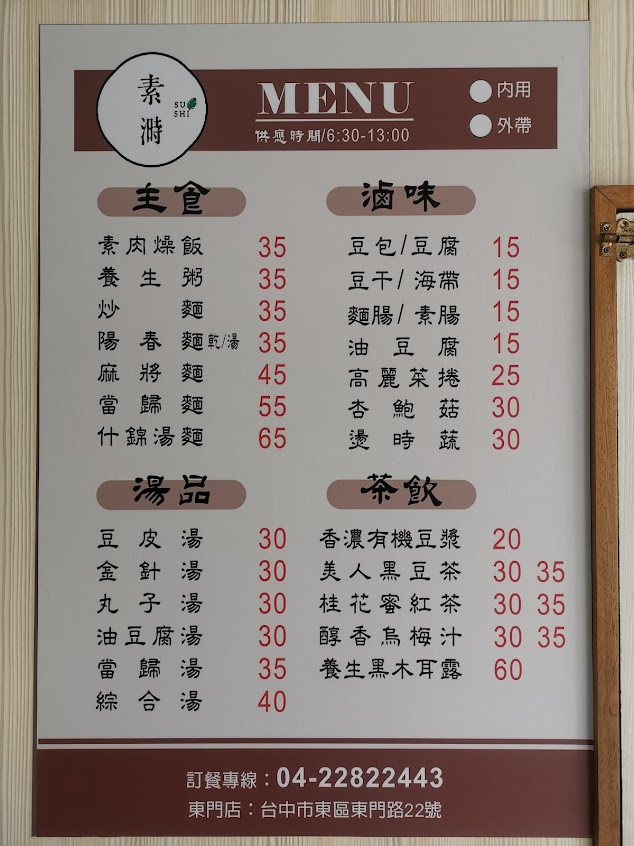 素溡
SU
SHI
MENU
供應時間/6:30-13:00
內用
外帶
主食
素肉燥飯 35
養生粥 35
炒麵 35
陽春麵乾/湯 35
麻將麵 45
當歸麵 55
什錦湯麵 65
滷味
豆包/豆腐 15
豆干/海帶 15
麵腸/素腸 15
油豆腐 15
高麗菜捲 25
杏鮑菇 30
燙時蔬 30
湯品
豆皮湯 30
金針湯 30
丸子湯 30
油豆腐湯 30
當歸湯 35
綜合湯 40
茶飲
香濃有機豆漿 20
美人黑豆茶 30 35
桂花蜜紅茶 30 35
醇香烏梅汁 30 35
養生黑木耳露 60
訂餐專線：04-22822443
東門店：台中市東區東門路22號